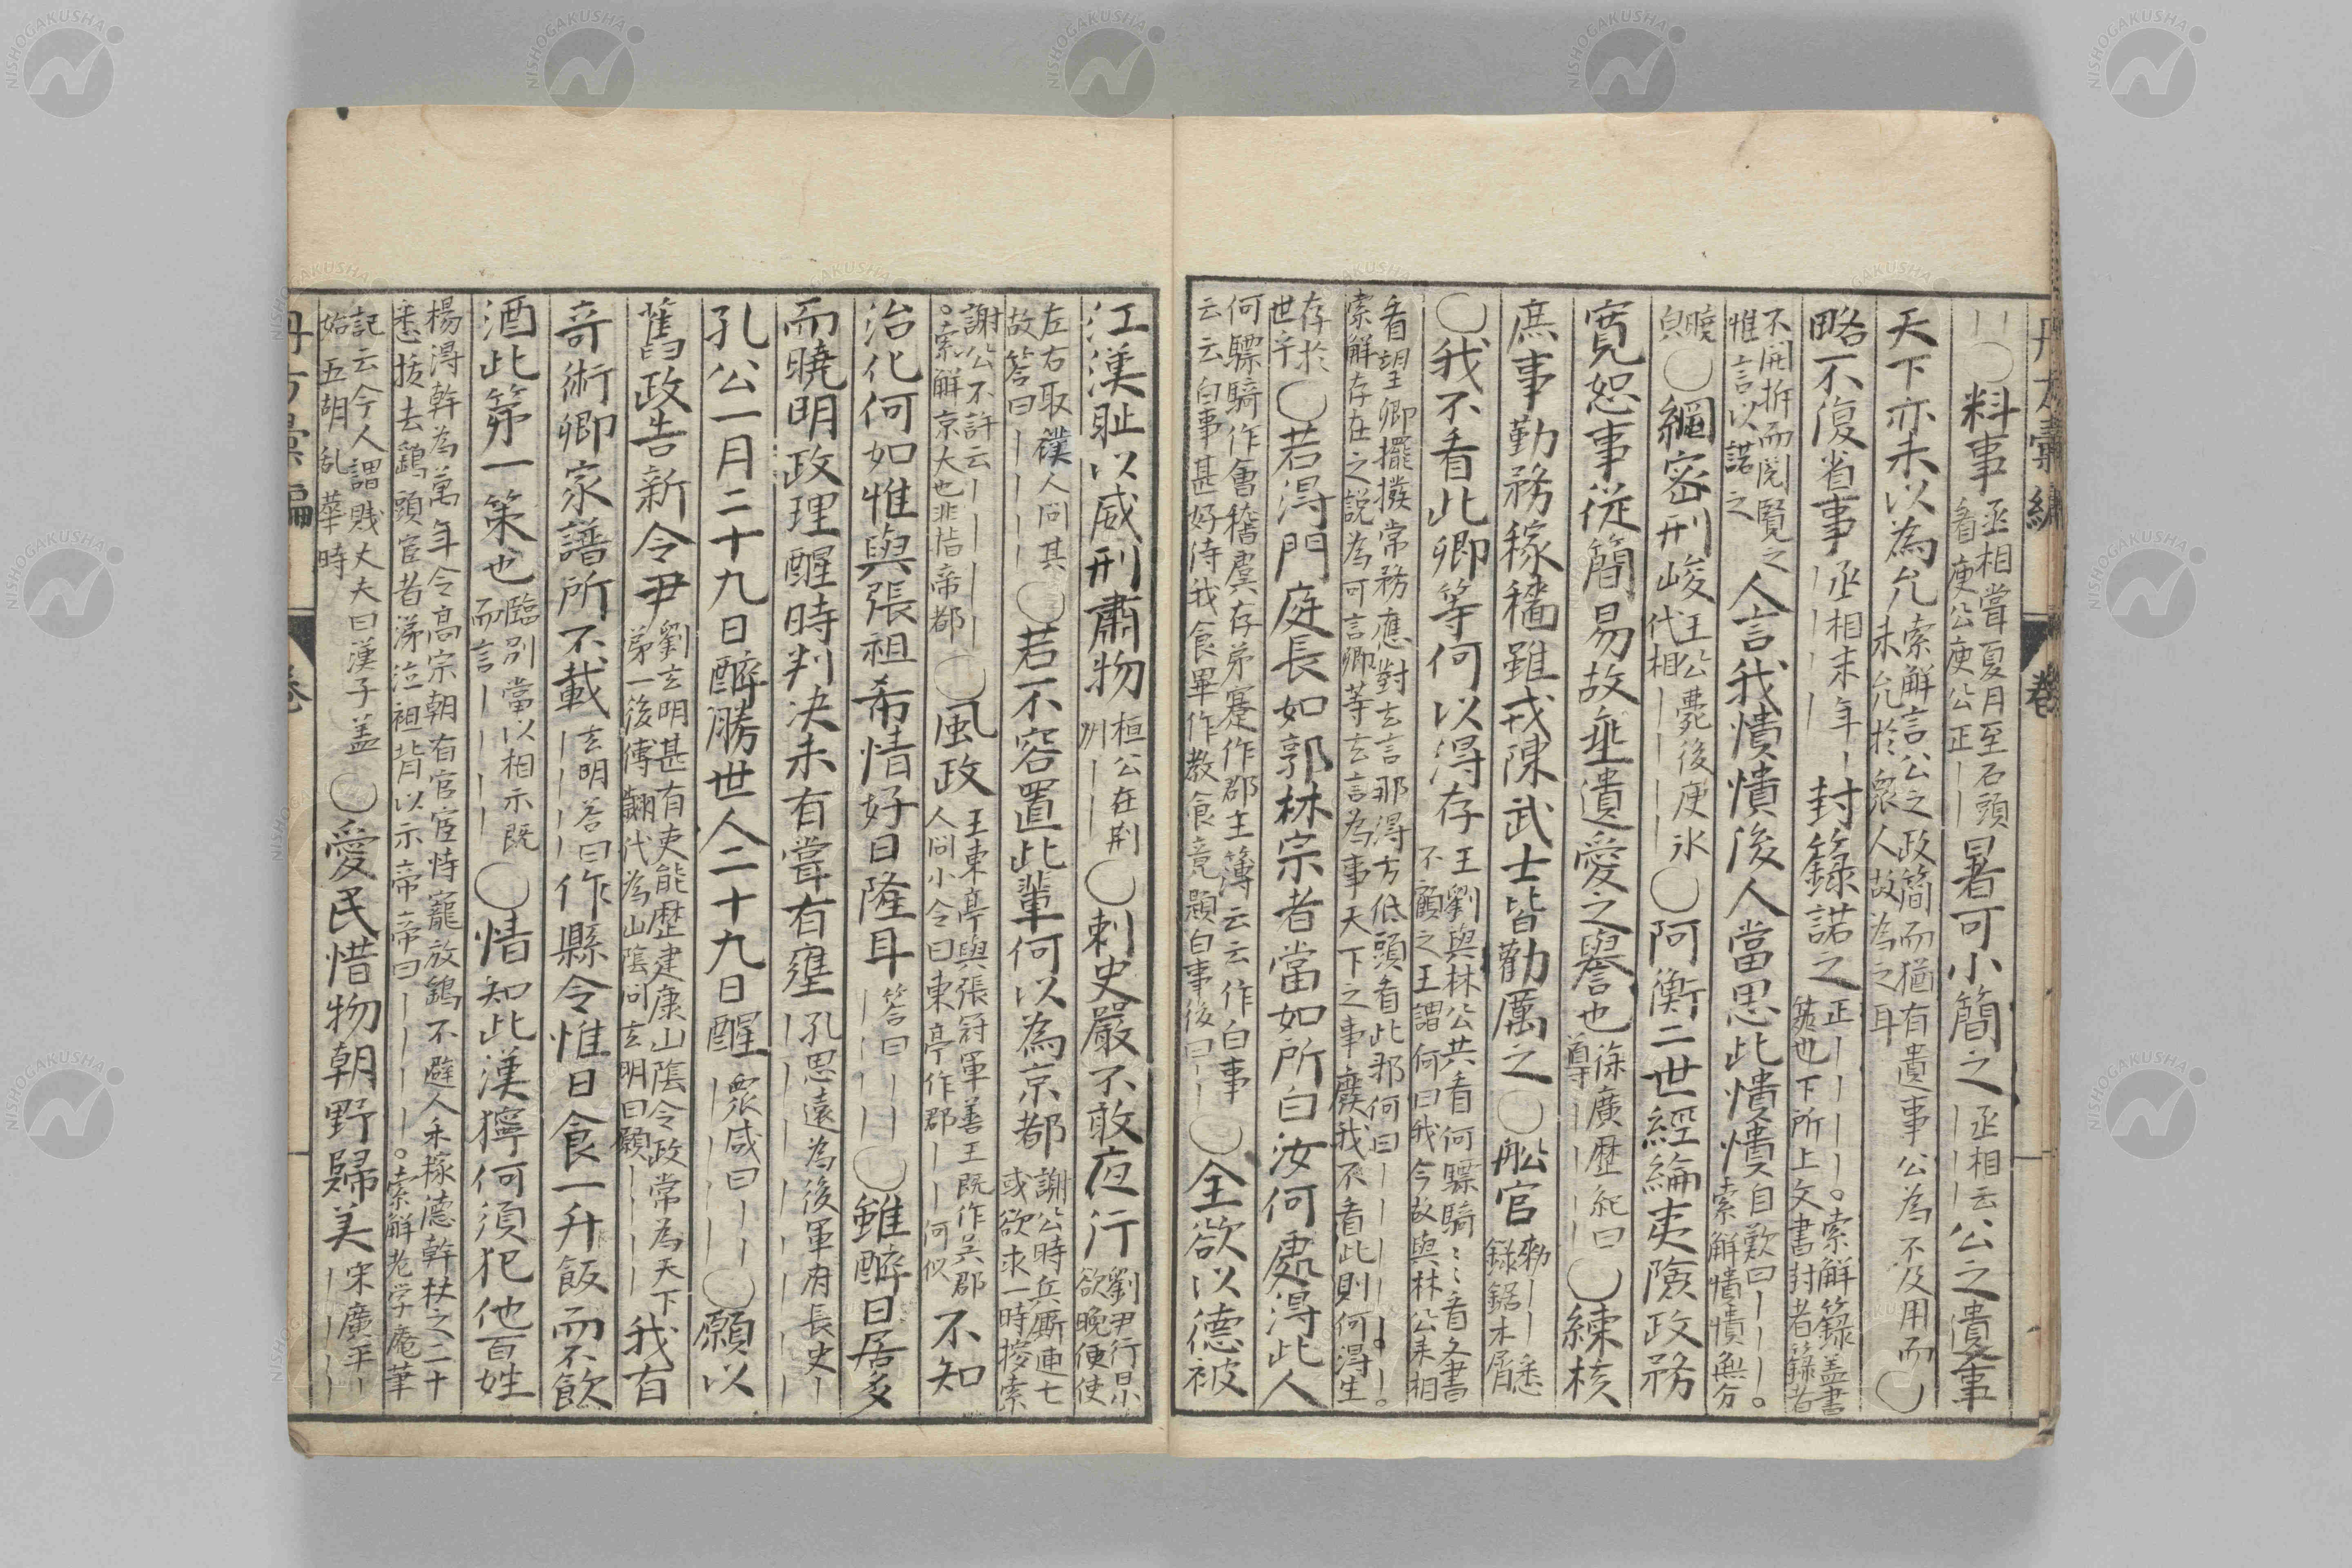 丹方彙編 卷
｜｜〇料事 丞相嘗夏月至石頭看庾公庾公正｜｜ 暑可小簡之 丞相云｜｜｜｜ 公之遺事
天下亦未以為允 索解言公之政簡而猶有遺事公為不及用而未允於衆人故為之耳 〇
略不復省事 丞相末年｜｜｜｜｜ 封籙諾之 正｜｜｜｜。索解籙盖書箓也下所上文書封者籙者
不開拆而閲覧之惟言以諾之 人言我憒憒後人當思此憒憒 自歎曰｜｜｜。索解憒憒無分
曉皃 〇綱密刑峻 王公薨後庾氷代相｜｜｜｜ 〇阿衡二世經綸夷險政務
寛恕事從簡易故垂遺愛之譽也 徐廣歷紀曰導｜｜｜｜ 〇練核
庶事勤務稼穡雖戎陳武士皆勸厲之 〇舩官 勑｜｜悉録鋸木屑
〇我不看此卿等何以得存 王劉與林公共看何驃騎ミミ看文書不顧之王謂何曰我今故與林公来相
看望卿擺撥常務應對玄言那得方低頭看此那何曰｜｜｜｜｜。｜。索解存在之説為可言卿等玄言為事天下之事廢我不看此則何得生
存於世乎 〇若得門庭長如郭林宗者當如所白汝何處得此人
何驃騎作會稽虞存弟蹇作郡主簿云云作白事云云白事甚好待我食畢作教食竟題白事後曰｜｜ 〇全欲以德被
江漢耻以威刑肅物 桓公在荆州｜｜｜ 〇刺史嚴不敢夜行 劉尹行日小欲晚便使
左右取襆人問其故答曰｜｜｜｜ 〇若不容置此輩何以為京都 謝公時兵厮逋亡或欲求一時捘索
謝公不許云｜｜｜｜｜。索解京大也非指帝都 〇風政 王東亭與張冠軍善王既作呉郡人問小令曰東亭作郡｜｜何似 不知
治化何如惟與張祖希情好日隆耳 答曰｜｜｜｜｜ 〇雖醉日居多
而曉明政理醒時判决未有嘗有壅 孔思遠為後軍府長史｜｜｜｜｜｜｜
孔公一月二十九日醉勝世人二十九日醒 衆咸曰｜｜｜｜｜ 〇願以
舊政告新令尹 劉玄明甚有吏能歴建康山陰令政常為天下第一後傅翽代為山陰問玄明曰願｜｜｜｜ 我有
奇術卿家譜所不載 玄明荅曰｜｜｜｜ 作縣令惟日食一升飯而不飲
酒此第一策也 臨別當以相示既而言｜｜｜｜ 〇情知此漢獰何須犯他百姓
楊得幹為萬年令高宗朝有官宦恃寵放鷂不避人禾稼德幹杖之二十悉拔去鷂頭宦者涕泣袒背以示帝帝曰｜｜｜｜｜。索解老学庵筆
記云今人謂賤丈夫曰漢子盖始五胡乱華時 〇愛民惜物朝野歸美 宋廣平｜｜｜｜
丹方彙編 卷